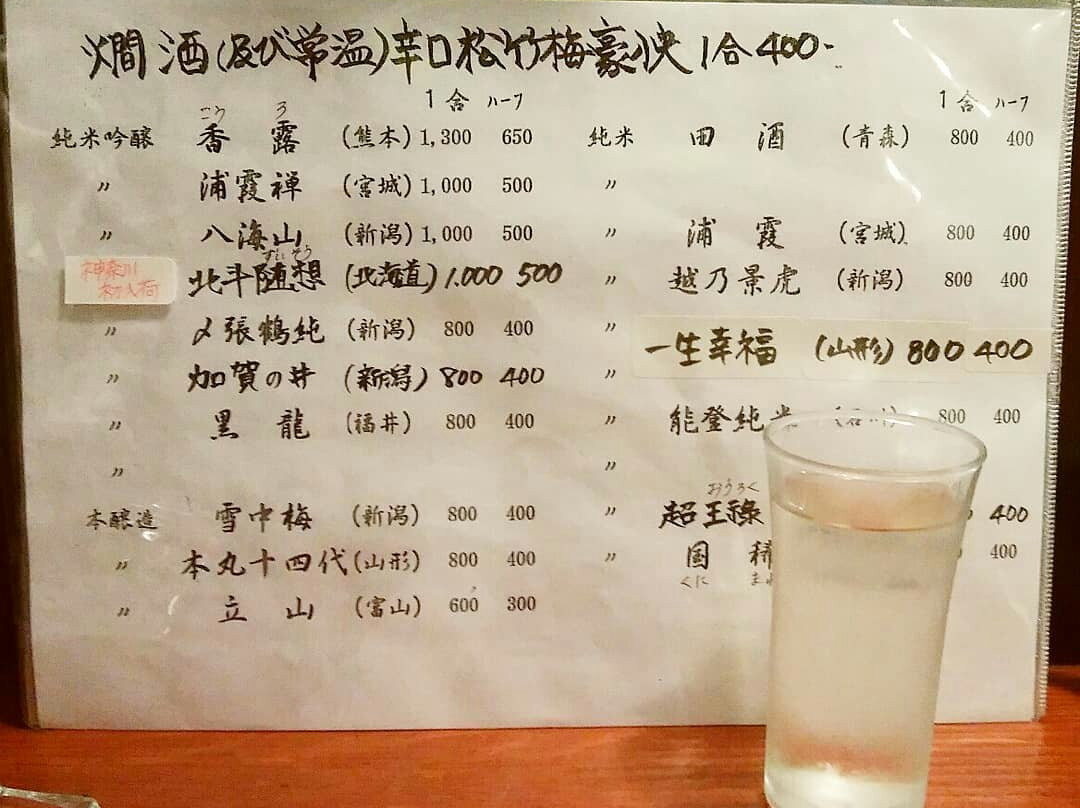 燗酒(及び常温)辛口松竹梅豪快1合400-
1合 ハーフ
こう ろ
純米吟醸 香露 (熊本) 1,300 650
〃 浦霞禅 (宮城) 1,000 500
〃 八海山 (新潟) 1,000 500
ずいそう
神奈川
初入荷
北斗随想 (北海道) 1.000 500
〃 〆張鶴純 (新潟) 800 400
〃 加賀の井 (新潟) 800 400
〃 黒龍 (福井) 800 400
〃
本醸造 雪中梅 (新潟) 800 400
〃 本丸十四代 (山形) 800 400
〃 立山 (富山) 600 300
1合 ハーフ
純米 田酒 (青森) 800 400
〃
〃 浦霞 (宮城) 800 400
〃 越乃景虎 (新潟) 800 400
〃 一生幸福 (山形) 800 400
〃
〃 能登純米 (石川) 800 400
〃
おうろく
〃 超王祿 400
〃 国稀 400
くに まれ